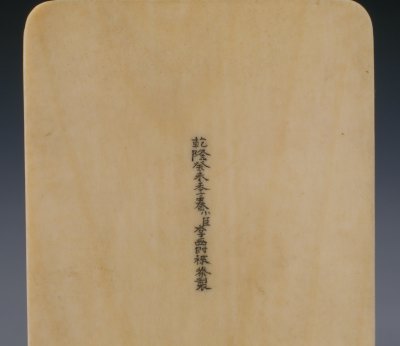 乾隆癸未季春小臣李爵祿恭製